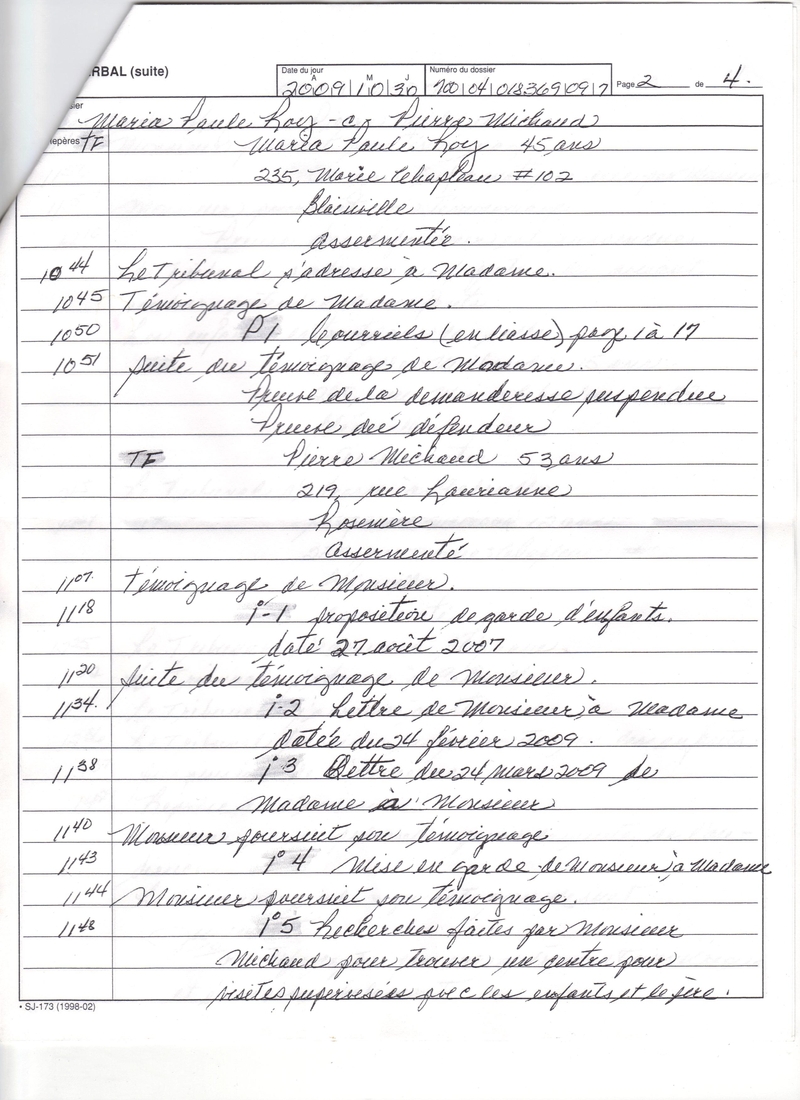 RBAL (suite)
Date du jour
A M J
2009 10 30
Numéro du dossier
700 04 018369 09 7
Page 2 de 4.
sier
Maria Paule Roy -c- Pierre Michaud
epères TF Maria Paule Roy 45 ans
235, Marie Chapleau #102
Blainville
Assermentée.
10 44 Le Tribunal s'adresse à Madame.
10 45 Témoignage de Madame.
10 50 P1 Courriels (en liasse) page 1 à 17
10 51 Suite du témoignage de Madame.
Preuve de la demanderesse suspendue
Preuve du défendeur
TF Pierre Michaud 53 ans
219, rue Laurianne
Rosemère
Assermenté
11 07 Témoignage de Monsieur.
11 18 i-1 proposition de garde d'enfants.
daté 27 août 2007
11 20 Suite du témoignage de Monsieur.
11 34. i-2 Lettre de Monsieur à Madame
datée du 24 février 2009.
11 38 i 3 Lettre du 24 mars 2009 de
Madame à Monsieur
11 40 Monsieur poursuit son témoignage
11 43 i 4 Mise en garde de Monsieur à Madame
11 44 Monsieur poursuit son témoignage.
11 48 i 5 Recherches faites par Monsieur
Michaud pour trouver un centre pour
visites supervisées avec les enfants et le père.
• SJ-173 (1998-02)